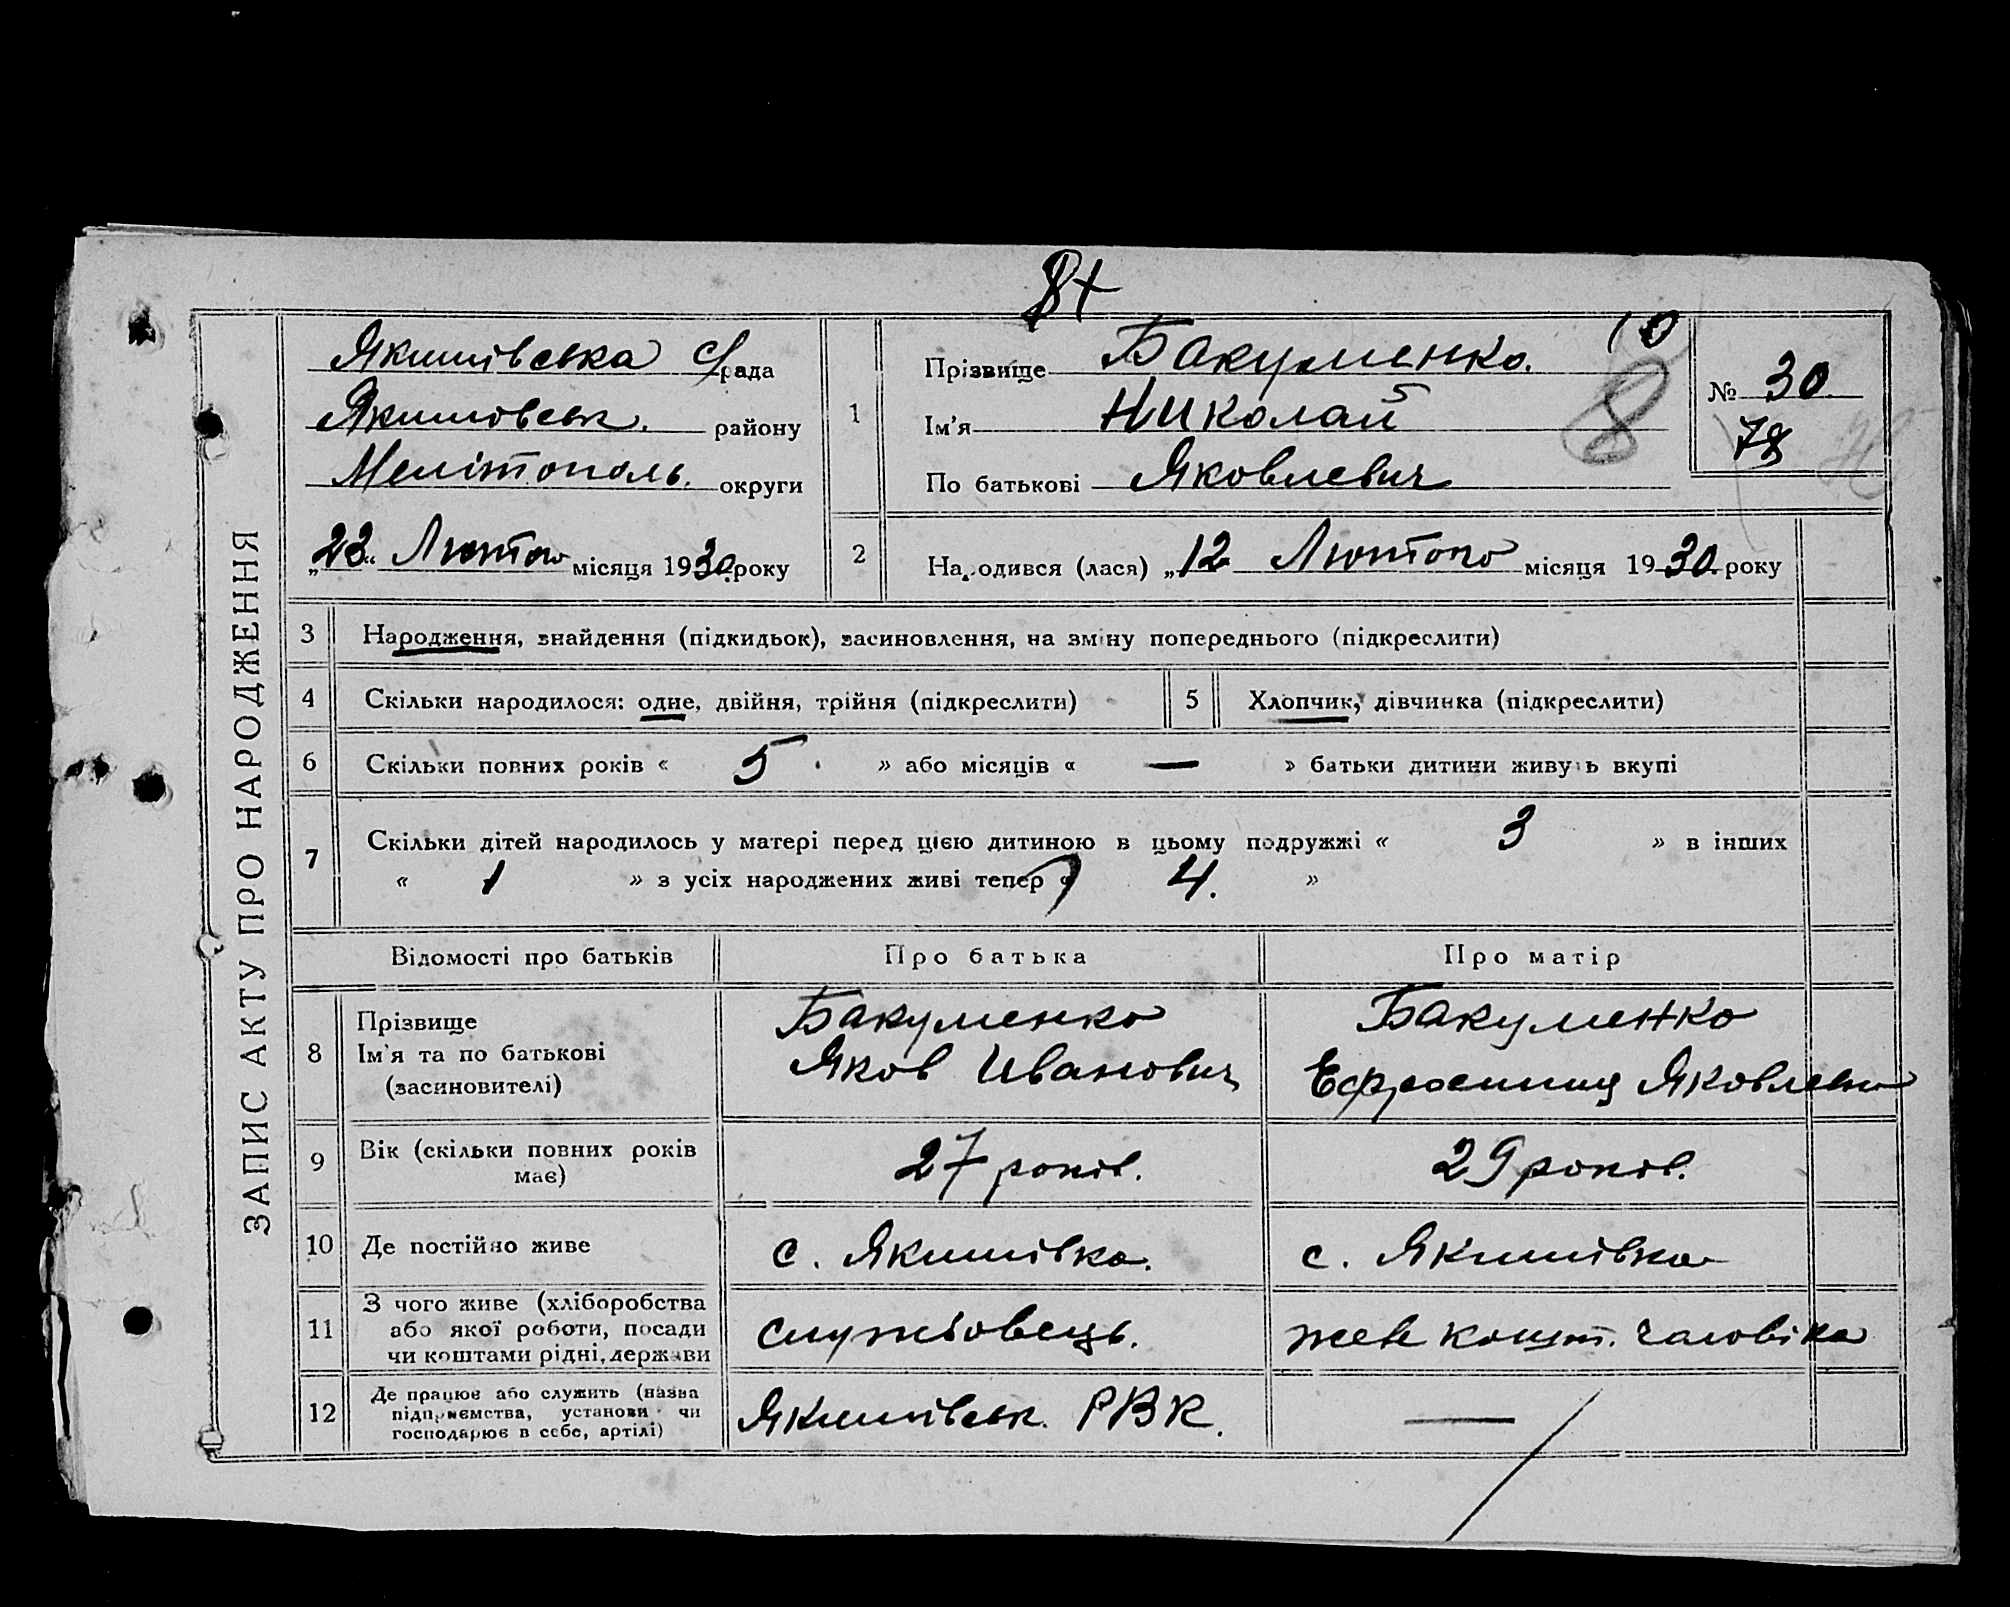 ЗАПИС АКТУ ПРО НАРОДЖЕННЯ
Якимівська с/рада
Якимовськ. району
Мелітополь. округи
„23“ Лютого місяця 1930 року
1
Прізвище Бакуменко.
Ім'я Николай
По батькові Яковлевич
10
8
№ 30.
78
2 Народився (лася) „12 Лютого місяця 1930 року
3 Народження, знайдення (підкидьок), засиновлення, на зміну попереднього (підкреслити)
4 Скільки народилося: одне, двійня, трійня (підкреслити) 5 Хлопчик, дівчинка (підкреслити)
6 Скільки повних років « 5 . » або місяців « — » батьки дитини живуть вкупі
7 Скільки дітей народилось у матері перед цією дитиною в цьому подружжі « 3 » в інших
« 1 » з усіх народжених живі тепер « 4. »
Відомості про батьків Про батька Про матір
8 Прізвище
Ім'я та по батькові
(засиновителі)
Бакуменко
Яков Иванович
Бакуменко
Ефросиния Яковлевн
9 Вік (скільки повних років
має)
27 років.
29 років.
10 Де постійно живе с. Якимівка. с. Якимівка
11 З чого живе (хліборобства
або якої роботи, посади
чи коштами рідні, держави
службовець.
жев кошт. чаловіка
12 Де працює або служить (назва
підприємства, установи чи
господарює в себе, артілі)
Якимівськ. РВК.
—